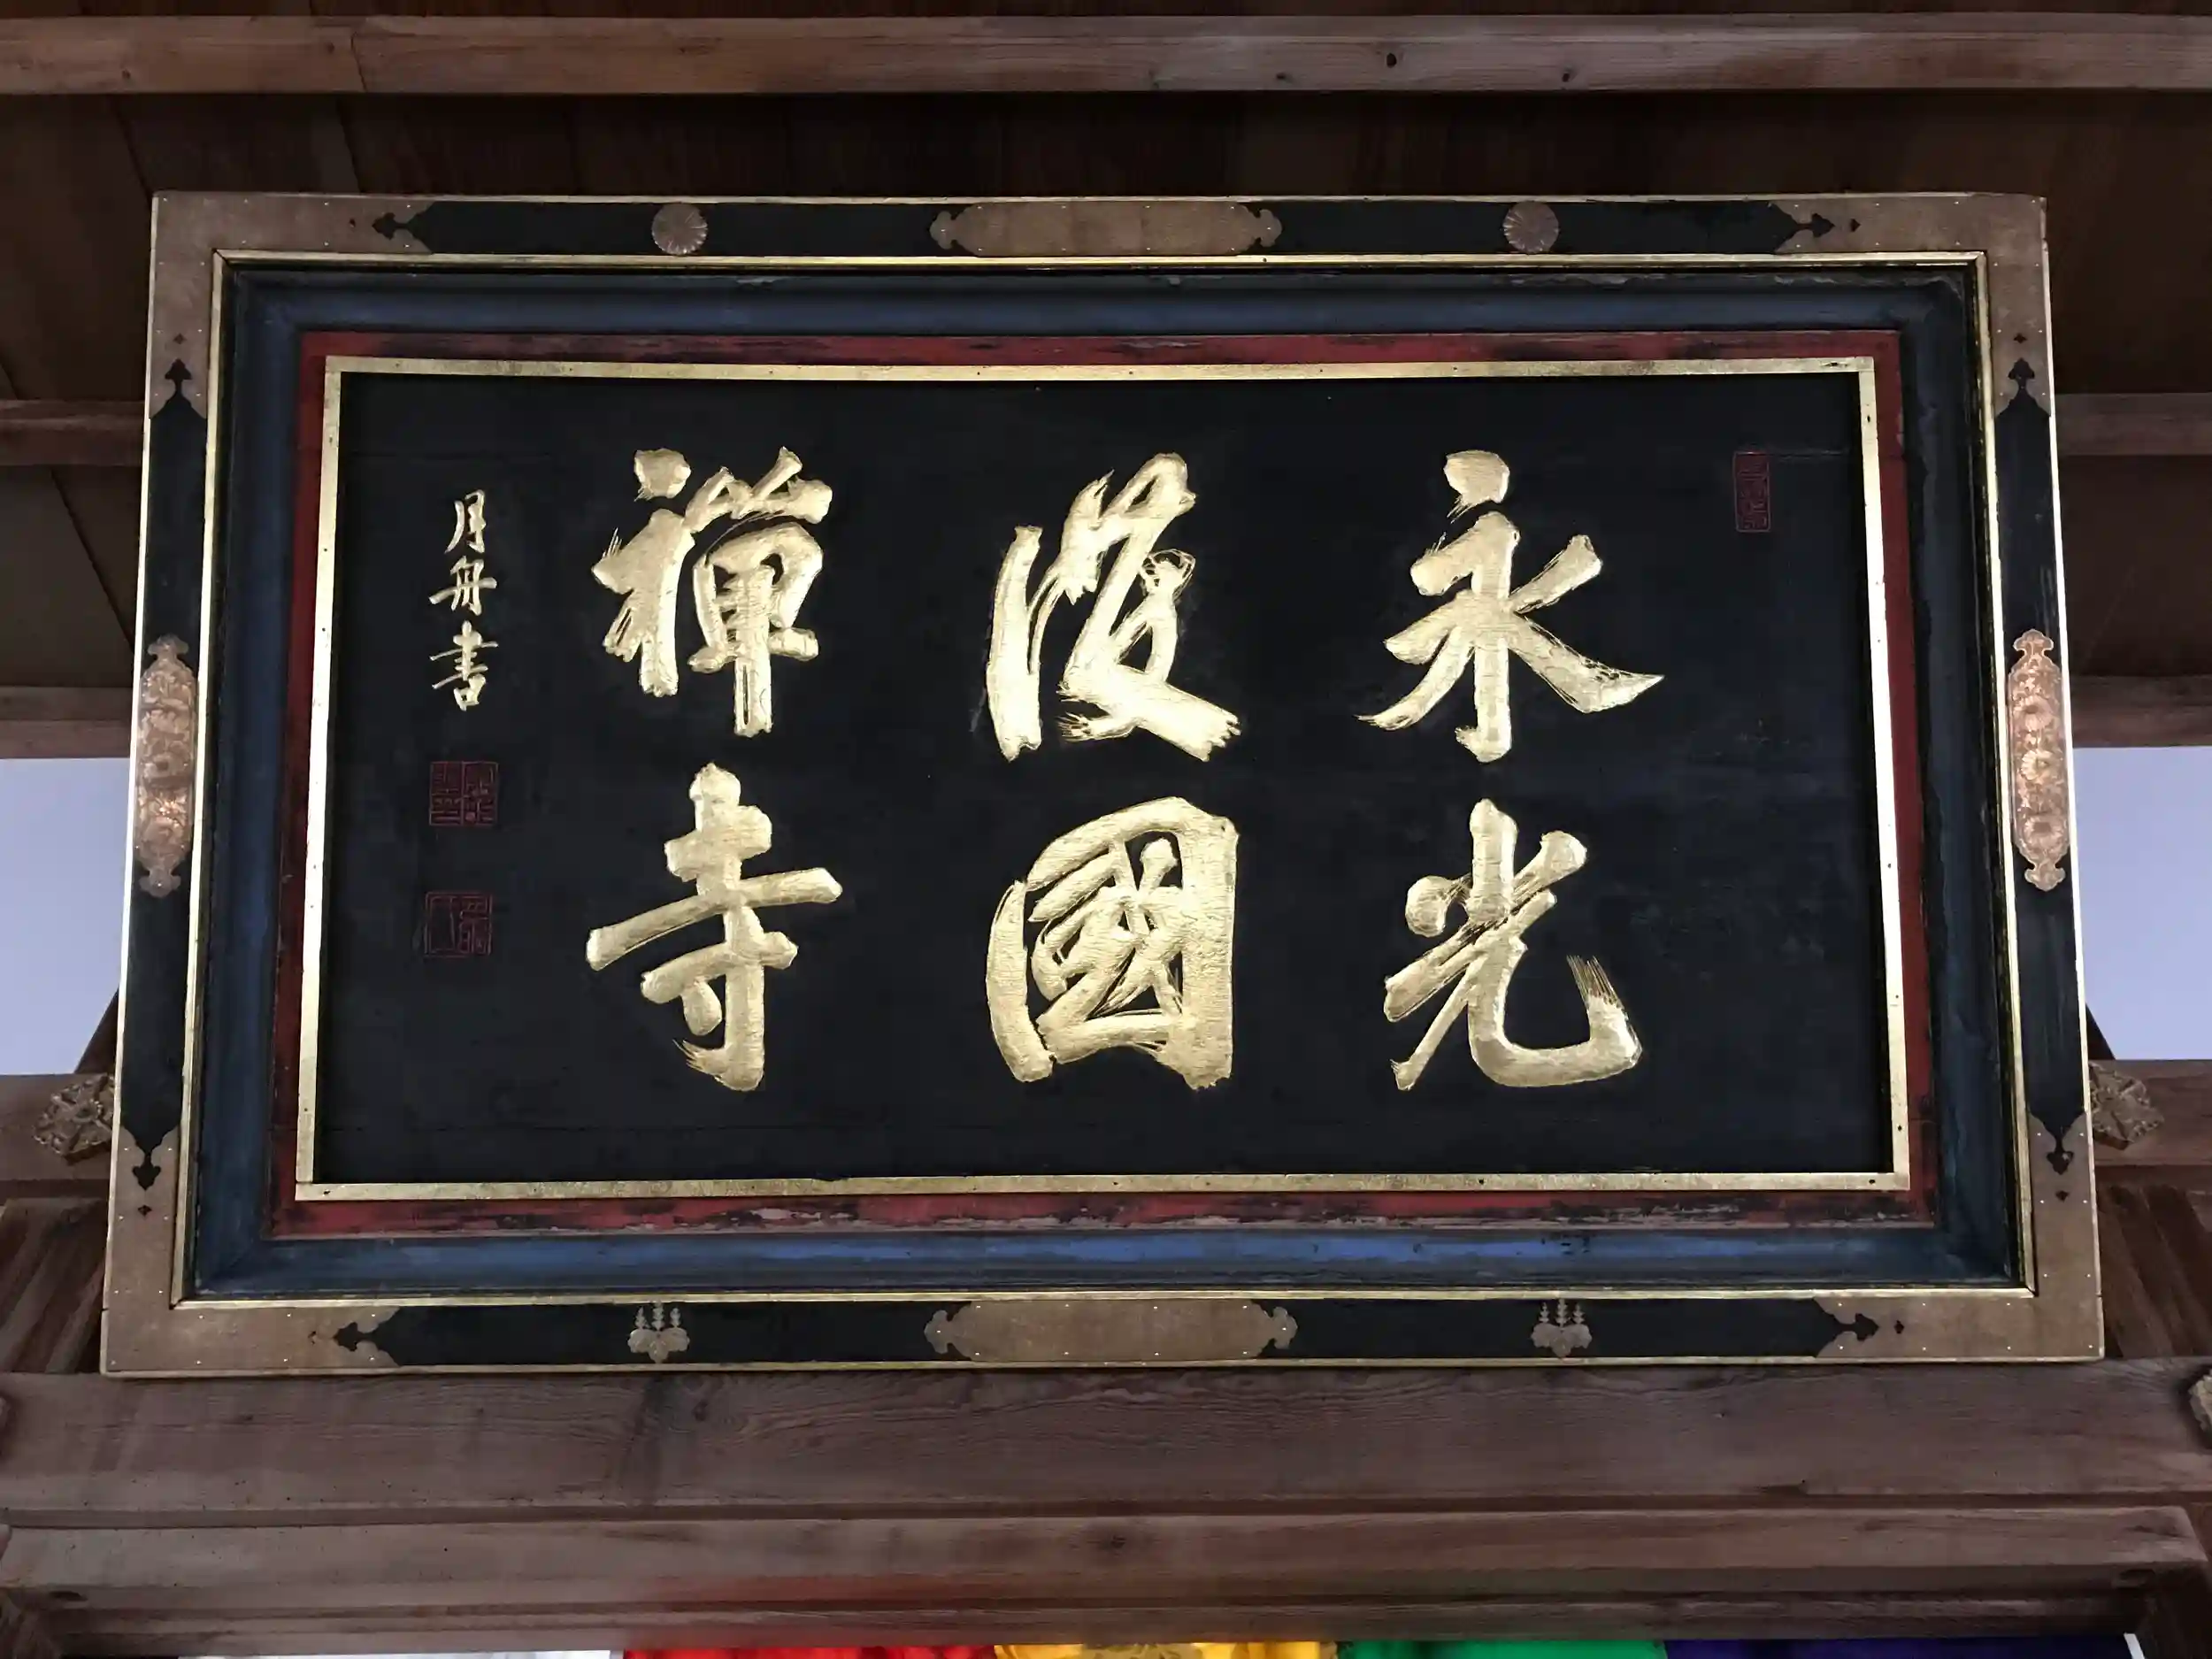 永光
護國
禅寺
月舟書